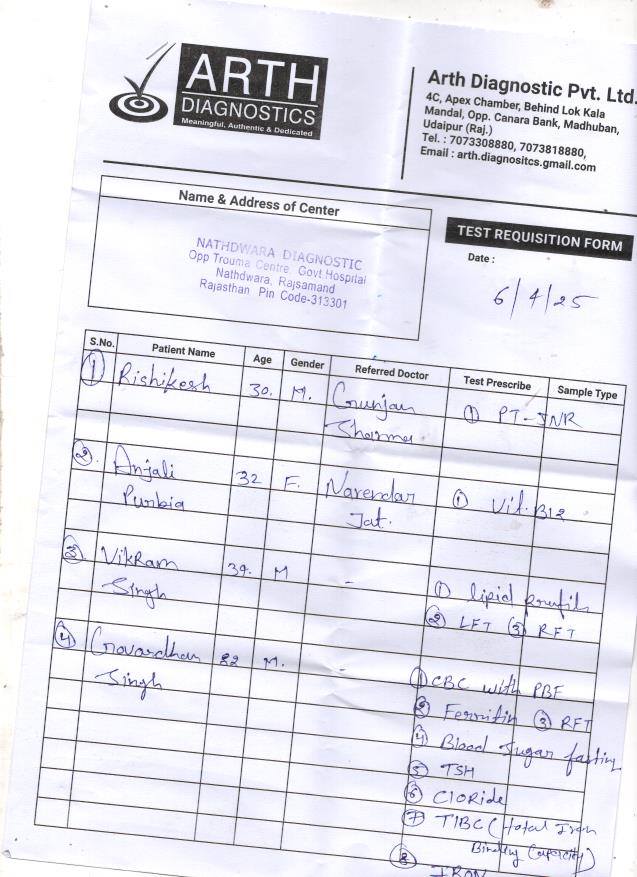 ARTH
DIAGNOSTICS
Meaningful, Authentic & Dedicated
Arth Diagnostic Pvt. Ltd.
4C, Apex Chamber, Behind Lok Kala
Mandal, Opp. Canara Bank, Madhuban,
Udaipur (Raj.)
Tel. : 7073308880, 7073818880,
Email : arth.diagnositcs.gmail.com
Name & Address of Center
NATHDWARA DIAGNOSTIC
Opp Trouma Centre, Govt.Hospital
Nathdwara, Rajsamand
Rajasthan Pin Code-313301
TEST REQUISITION FORM
Date :
6/4/25
S.No. Patient Name Age Gender Referred Doctor Test Prescribe Sample Type
① Rishikesh 30. M. Gunjan ① PT-INR
Sharma
②. Anjali 32 F. Narendar ① Vit. B12
Purbia Jat.
③ Vikram 39. M -
Singh ① lipid profile
② LFT ③ RFT
④ Govardhan 22 M. -
Singh ① CBC with PBF
② Ferritin ③ RFT
④ Blood Sugar fasting
⑤ TSH
⑥ ClORide
⑦ TIBC (total Iron
Binding Capacity)
⑧ IRON